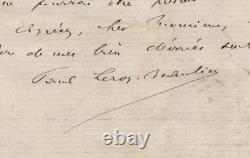 ne pourrai être
Agréez, cher Monsieur,
de mes bien dévoués
Paul Leroy-Beaulieu